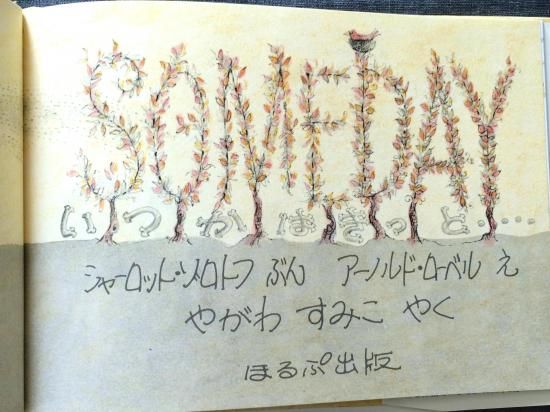 SOMEDAY
いつかはきっと・・・・
シャーロット・ゾロトフ ぶん アーノルド・ローベル え
やがわ すみこ やく
ほるぷ出版